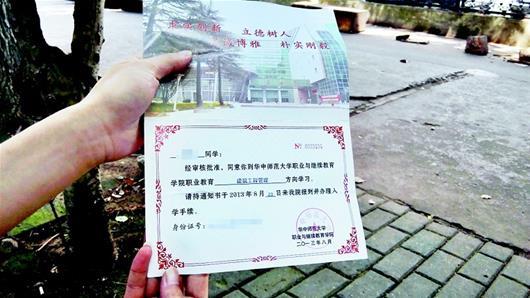 求实创新 立德树人
诚博雅 朴实刚毅
同学:
经审核批准,同意你到华中师范大学职业与继续教育
学院职业教育 建筑工程管理 方向学习。
请持通知书于2013年8月 日来我院报到并办理入
学手续。
身份证号:
华中师范大学
职业与继续教育学院
二〇一三年八月